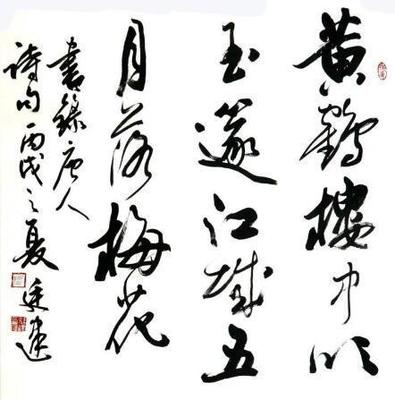 黄鶴樓中吹
玉篴江城五
月落梅花
書錄唐人
詩句丙戌之夏廷建